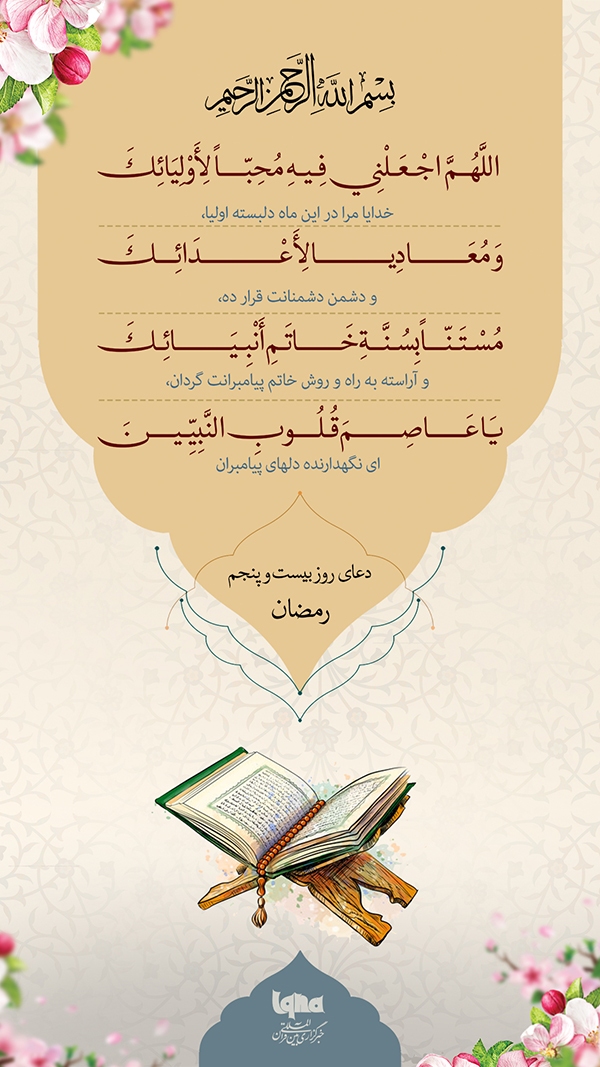 بِسْمِ اللَّهِ الرَّحْمنِ الرَّحِيمِ
اللَّهُمَّ اجْعَلْنِي فِيهِ مُحِبّاً لِأَوْلِيَائِكَ
خدایا مرا در این ماه دلبسته اولیا،
وَمُعَادِيا لِأَعْدَائِكَ
و دشمن دشمنانت قرار ده،
مُسْتَنّاً بِسُنَّةِ خَاتَمِ أَنْبِيَائِكَ
و آراسته به راه و روش خاتم پیامبرانت گردان،
يَا عَاصِمَ قُلُوبِ النَّبِيِّينَ
ای نگهدارنده دلهای پیامبران
دعای روز بیست و پنجم
رمضان
iqna
خبرگزاری بین المللی قرآن